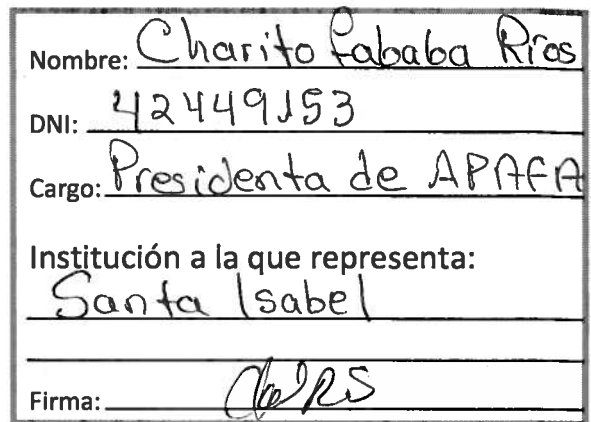 Nombre: Charito Fababa Ríos
DNI: 42449153
Cargo: Presidenta de APAFA
Institución a la que representa:
Santa Isabel
Firma: